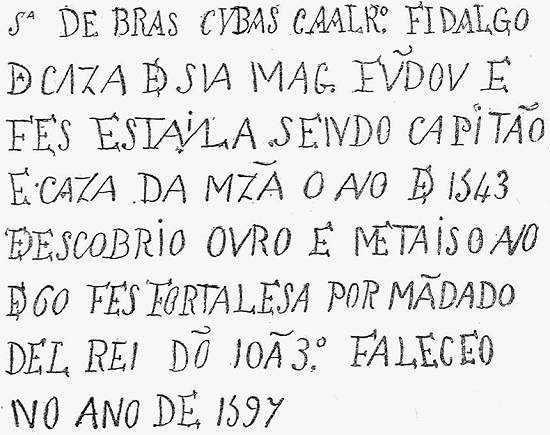 Sª DE BRAS CVBAS CAALRº. FIDALGO
DA CAZA DE SVA MAG. FVÑDOV E
FES ESTA VILA SENDO CAPITÃO
E CAZA DA MZÃ O NO DE 1543
DESCOBRIO OVRO E METAIS O NO
DE 60 FES FORTALESA POR MÃDADO
DEL REI DÕ IOÃ 3º. FALECEO
NO ANO DE 1597